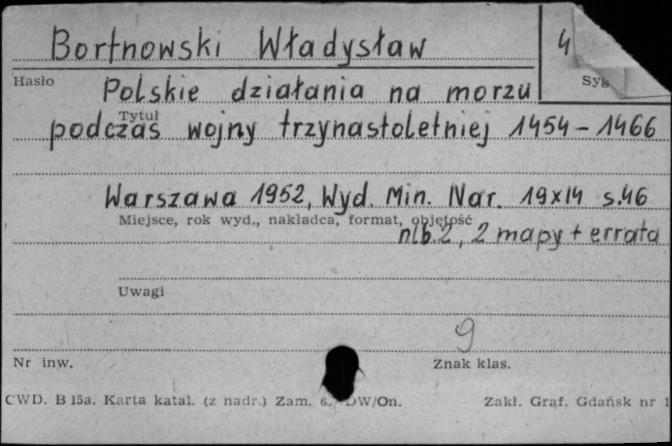 Bortnowski Władysław
4
Hasło
Polskie działania na morzu
Tytuł
podczas wojny trzynastoletniej 1454-1466
Warszawa 1952, Wyd. Min. Nar. 19x14 s.46
Miejsce, rok wyd., nakładca, format, objętość
nlb.2, 2 mapy + errata
Uwagi
9
Nr inw.
Znak klas.
CWD. B 15a. Karta katal. (z nadr.) Zam. W/On.
Zakł. Graf. Gdańsk nr 1